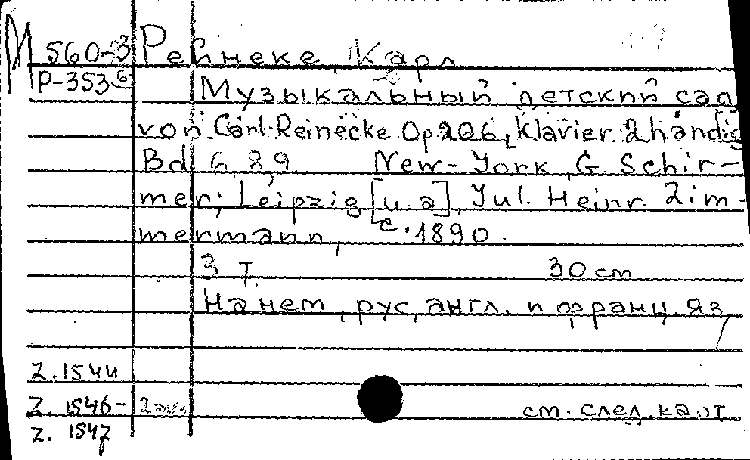 М 560-3 Рейнеке, Карл
Р-353
Музыкальный детский сад
von Carl Reinecke Op 206, Klavier 2 händig
Bd 6, 8, 9 New-York, G Schir-
mer; Leipzig [u.a], Jul. Heinr. Zim-
mermann, c. 1890.
3 т. 30 см
На нем, рус, англ. и франц. яз
Z. 1544
Z. 1546- 2 экз.
см. след. карт
Z. 1547